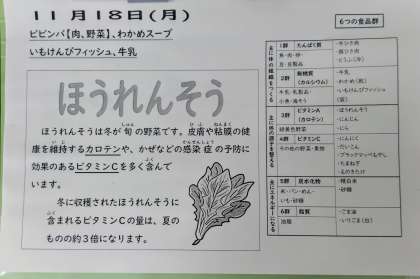 11月18日(月)
ビビンバ【肉、野菜】、わかめスープ
いもけんぴフィッシュ、牛乳
ほうれんそう
ほうれんそうは冬が旬の野菜です。皮膚や粘膜の健
康を維持するカロテンや、かぜなどの感染症の予防に
効果のあるビタミンCを多く含んで
います。
冬に収穫されたほうれんそうに
含まれるビタミンCの量は、夏の
ものの約3倍になります。
6つの食品群
主に体の組織をつくる
1群 たんぱく質
魚・肉・卵・
豆・豆製品
・牛ひき肉
・豚ひき肉
2群 無機質
(カルシウム)
牛乳・乳製品・
小魚・海そう
・牛乳
・わかめ(乾)
・いもけんぴフィッシュ
主に体の調子を整える
3群 ビタミンA
(カロテン)
緑黄色野菜
・ほうれんそう
・にんじん
4群 ビタミンC
その他の野菜・果物
・にんにく
・だいこん
・ブラックマッペもやし
・たまねぎ
主にエネルギーになる
5群 炭水化物
米・パン・めん・
いも・砂糖
・精白米
・砂糖
6群 脂質
油脂
・ごま油
・いりごま(白)